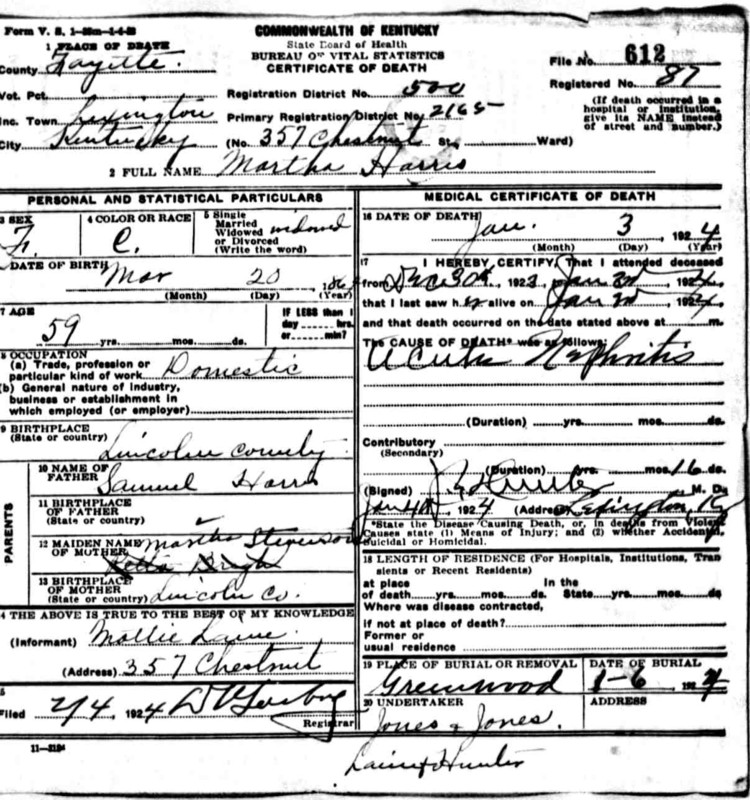 Form V. S. 1-
COMMONWEALTH OF KENTUCKY
State Board of Health
BUREAU OF VITAL STATISTICS
CERTIFICATE OF DEATH
1 PLACE OF DEATH
County Fayette.
File No. 612
Registered No. 87
Vot. Pct.
Registration District No. 500
Inc. Town Lexington
Primary Registration District No. 2165
(If death occurred in a hospital or institution, give its NAME instead of street and number.)
City Kentucky (No. 357 Chestnut St., Ward)
2 FULL NAME Martha Harris
PERSONAL AND STATISTICAL PARTICULARS
3 SEX
F.
4 COLOR OR RACE
C.
5 Single
Married
Widowed widowed
or Divorced
(Write the word)
DATE OF BIRTH Mar 20
(Month) (Day) (Year)
7 AGE
59 yrs. mos. ds.
IF LESS than 1
day hrs.
or min?
8 OCCUPATION
(a) Trade, profession or
particular kind of work Domestic
(b) General nature of industry,
business or establishment in
which employed (or employer)
9 BIRTHPLACE
(State or country)
Lincoln county
PARENTS
10 NAME OF
FATHER
Samuel Harris
11 BIRTHPLACE
OF FATHER
(State or country)
12 MAIDEN NAME Martha Stevenson
OF MOTHER
13 BIRTHPLACE
OF MOTHER
(State or country) Lincoln Co.
4 THE ABOVE IS TRUE TO THE BEST OF MY KNOWLEDGE
(Informant) Mollie
(Address) 357 Chestnut
Filed 2/4, 1924
Registrar
11-3184
MEDICAL CERTIFICATE OF DEATH
16 DATE OF DEATH
Jan. 3, 1924
(Month) (Day) (Year)
17 I HEREBY CERTIFY, That I attended deceased
from Dec 30th, 1923, to Jan 3rd, 1924,
that I last saw her alive on Jan 3rd, 1924,
and that death occurred on the date stated above at m.
The CAUSE OF DEATH* was as follows:
Acute Nephritis
(Duration) yrs. mos. ds.
Contributory
(Secondary)
(Duration) yrs. mos. 16 ds.
(Signed) Hunter M. D.
Jan 4th, 1924 (Address) Lexington, Ky
*State the Disease Causing Death, or, in deaths from Violent
Causes state (1) Means of Injury; and (2) whether Accidental,
Suicidal or Homicidal.
18 LENGTH OF RESIDENCE (For Hospitals, Institutions, Tran
sients or Recent Residents)
at place In the
of death yrs. mos. ds. State yrs. mos. ds.
Where was disease contracted,
if not at place of death?
Former or
usual residence
19 PLACE OF BURIAL OR REMOVAL
Greenwood
DATE OF BURIAL
1-6 1924
20 UNDERTAKER
Jones & Jones.
ADDRESS
Hunter